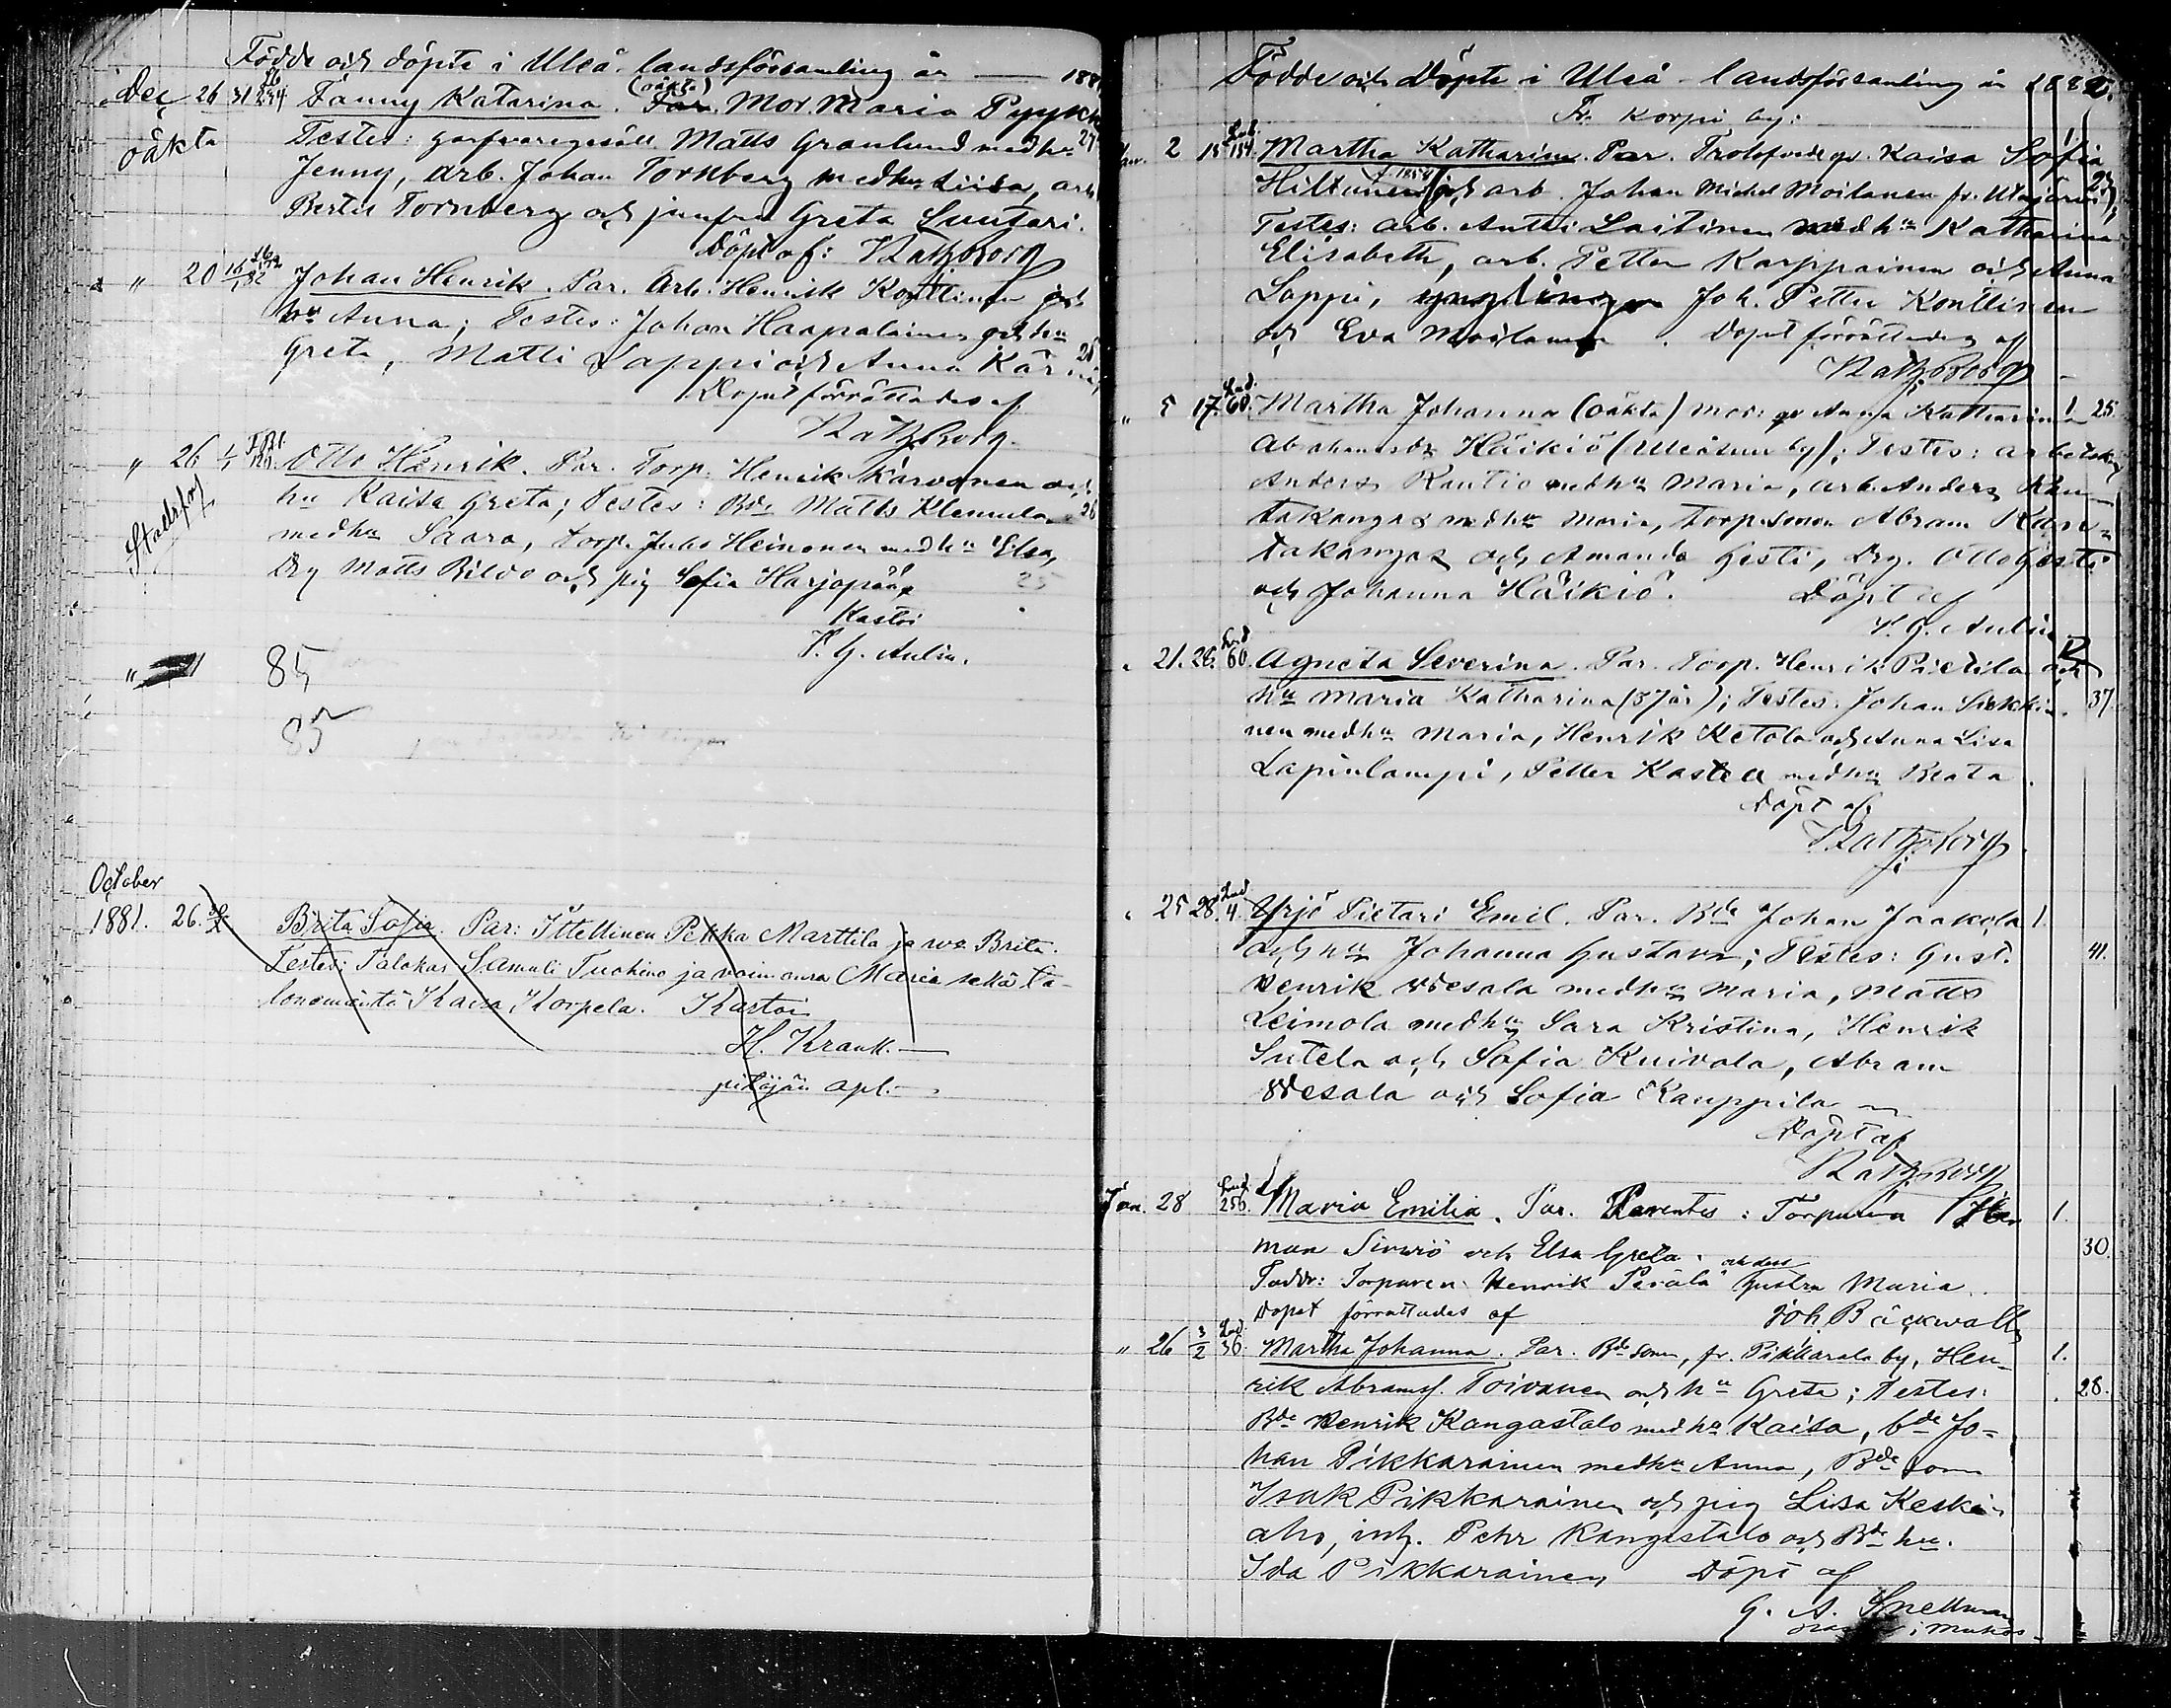 Födde och döpte i Uleå landsförsamling år — 188
Dec 26 31 234 Fanny Katarina. (oäkta) Mor. Maria Pyyk
oäkta Testes: garfvaregesäll Matts Granlund med hu 27
Jenny, arb. Johan Tornberg med hu Liisa, arb
Bertil Tornberg och jungfru Greta Suutari.
Döpt af: Ratzborg
" 20 Johan Henrik. Par. Arb. Henrik Konttinen och
hu Anna; Testes: Johan Haapalainen och hu
Greta, Matti Lappi och Anna Kär 28
Dopet förrättades af
Ratzborg.
" 26 1/1 120. Otto Henrik. Par. Torp. Henrik Karvonen och
Stadsfög hu Kaisa Greta; Testes: Bde Matts Klemula 26
med hu Saara, torp. Juho Heinonen med hu Elsa,
Drg Matts Rilvo och pig Sofia Harjopää
25
Kastoi
P. G. Aulin.
" 85
85
October
1881. 26. Brita Sofia. Par: Ittellinen Pekka Marttila ja wo Brita.
Testes: Talokas Samuli Tuohino ja vaimonsa Maria sekä ta-
lonemäntä Kaisa Korpela. Kastoi
H. Krank.
pitäjän apl.
Födde och Döpte i Uleå landsförsamling år 1882.
Fr. Korpi by:
Jan. 2 15 184. Martha Katharina. Par. Kaisa Sofia
Hiltunen och arb. Johan Michel Moilanen fr. Utajärvi, 23
Testes: arb. Antti Laitinen med hu Katharina
Elisabeth, arb. Petter Karppainen och Anna
Lappi, ynglingen Joh. Petter Konttinen
och Eva Moilanen. Dopet förrättades af
Ratzborg
" 5 17. 60. Martha Johanna (oäkta) mor: qv Anna Katharina 1 25.
Abrahamsdr Häikiö (Uleåsuu by); Testes: arbetskarl
Anders Rautio med hu Maria, arb. Anders Kan-
takangas med hu Maria, torp.sonen Abram Kan-
takangas och Amanda Gesti, Drg. Otto Gesti
och Johanna Häikiö. Döpt af
P. G. Aulin
" 21. 26. 60. Agneta Severina. Par. Torp. Henrik Pietilä och
hu Maria Katharina (37 år); Testes: Johan Sirkki- 37.
nen med hu Maria, Henrik Ketola och Anna Lisa
Lapinlampi, Petter Kastea med hu Beata.
Döpt af
Ratzborg
" 25 28. 4. Yrjö Pietari Emil. Par. Bde Johan Jaakola 1.
och hu Johanna Gustava; Testes: Gust. 41.
Henrik Wesala med hu Maria, Matts
Leimola med hu Sara Kristina, Henrik
Sutela och Sofia Kuivala, Abram
Wesala och Sofia Kauppila
Döpt af
Ratzborg
Jan. 28 256. Maria Emilia. Par. Parentes: Torparen Her 1.
man Sirviö och Elsa Greta. 30.
Faddr: Torparen Henrik Perälä och dess hustru Maria.
Dopet förrattades af Joh. Bäckwall
" 26 3/2 36. Martha Johanna. Par. Bde sonen, fr. Pikkarala by, Hen- 1.
rik Abramsf. Toivanen och hu Greta; Testes: 28.
Bde Henrik Kangastalo med hu Kaisa, bde Jo-
han Pikkarainen med hu Anna, Bde son
Isak Pikkarainen och pig Liisa Keski-
aho, inh. Petr Kangastalo och Bde hu.
Ida Pikkarainen Döpt af
G. A. Snellman
i Muhos